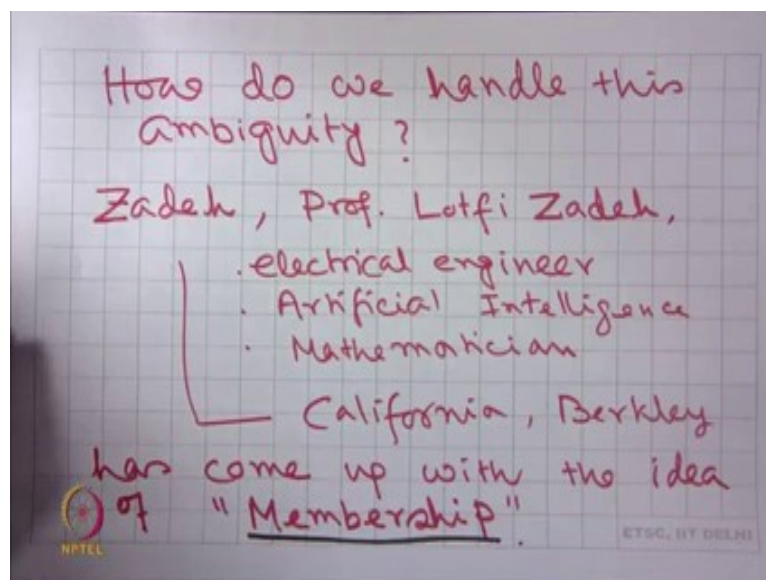 How do we handle this
ambiguity ?
Zadeh, Prof. Lotfi Zadeh,
. electrical engineer
. Artificial Intelligence
. Mathematician
California, Berkley
has come up with the idea
of "Membership".
NPTEL
ETSC, IIT DELHI